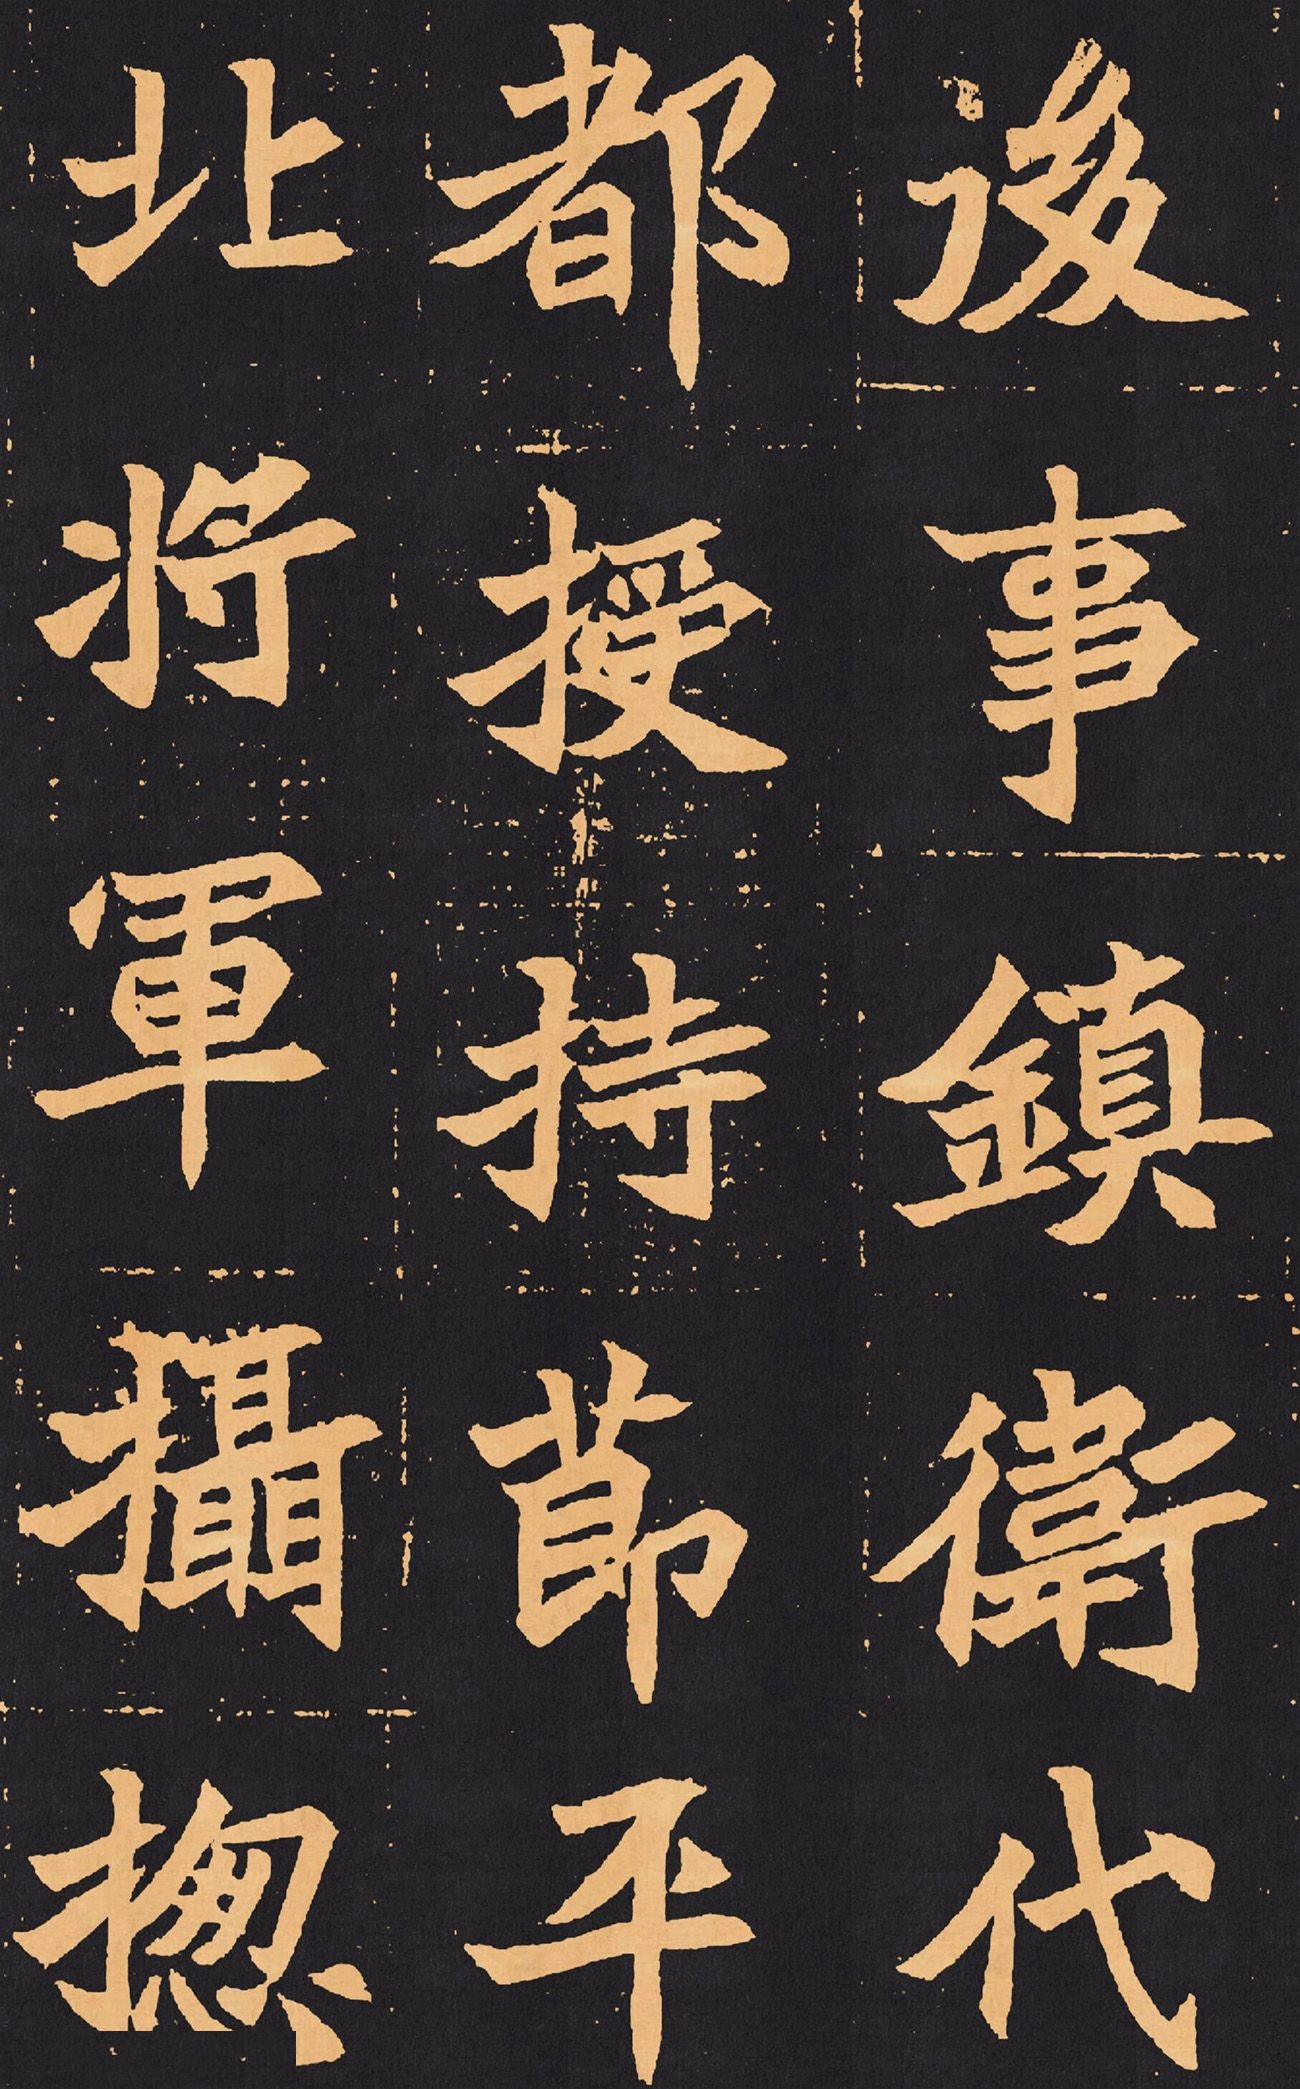 後事鎮衛代
都授持節平
北將軍攝揔